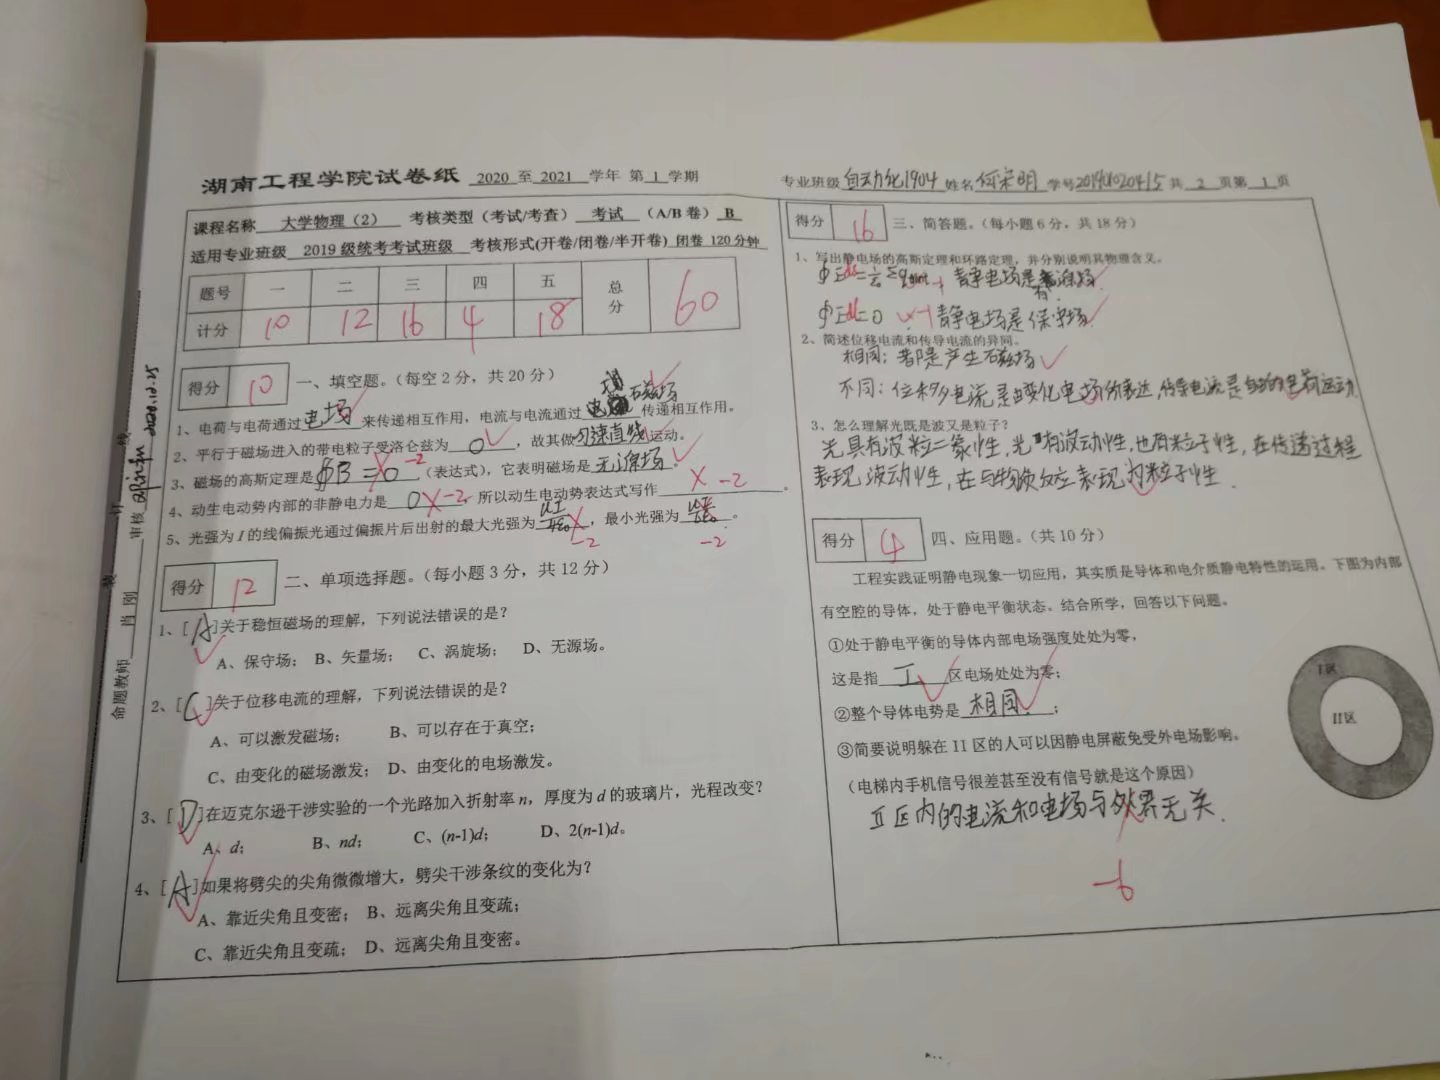 湖南工程学院试卷纸 2020 至 2021 学年 第 1 学期
专业班级 自动化1904 姓名 学号 共 2 页第 1 页
课程名称 大学物理（2） 考核类型（考试/考查） 考试 （A/B 卷） B
适用专业班级 2019 级统考考试班级 考核形式(开卷/闭卷/半开卷) 闭卷 120 分钟
题号 一 二 三 四 五 总分
计分 10 12 16 4 18 60
得分 10 一、填空题。（每空 2 分，共 20 分）
1、电荷与电荷通过 电场 来传递相互作用，电流与电流通过 磁场 传递相互作用。
2、平行于磁场进入的带电粒子受洛仑兹为 0 ，故其做 匀速直线 运动。
3、磁场的高斯定理是 ∮B =0 -2 （表达式），它表明磁场是 无源场 。
4、动生电动势内部的非静电力是 0 -2 ，所以动生电动势表达式写作 -2 。
5、光强为 I 的线偏振光通过偏振片后出射的最大光强为 ，最小光强为 。
-2 -2
得分 12 二、单项选择题。（每小题 3 分，共 12 分）
1、[ A ]关于稳恒磁场的理解，下列说法错误的是？
A、保守场； B、矢量场； C、涡旋场； D、无源场。
2、[ C ]关于位移电流的理解，下列说法错误的是？
A、可以激发磁场； B、可以存在于真空；
C、由变化的磁场激发； D、由变化的电场激发。
3、[ D ]在迈克尔逊干涉实验的一个光路加入折射率 n，厚度为 d 的玻璃片，光程改变？
A、d； B、nd； C、(n-1)d； D、2(n-1)d。
4、[ A ]如果将劈尖的尖角微微增大，劈尖干涉条纹的变化为？
A、靠近尖角且变密； B、远离尖角且变疏；
C、靠近尖角且变疏； D、远离尖角且变密。
命题教师 肖 刚 审核
装 订 线
得分 16 三、简答题。（每小题 6 分，共 18 分）
1、写出静电场的高斯定理和环路定理，并分别说明其物理含义。
静电场是有源场
静电场是保守场
2、简述位移电流和传导电流的异同。
相同：都是产生磁场
不同：位移电流是由变化电场的表达，传导电流是自由的电荷运动
3、怎么理解光既是波又是粒子？
光具有波粒二象性，光 有波动性，也有粒子性，在传递过程
表现波动性，在与物质反应表现为粒子性．
得分 4 四、应用题。（共 10 分）
工程实践证明静电现象一切应用，其实质是导体和电介质静电特性的运用。下图为内部
有空腔的导体，处于静电平衡状态。结合所学，回答以下问题。
①处于静电平衡的导体内部电场强度处处为零，
这是指 区电场处处为零；
②整个导体电势是 相同 ；
③简要说明躲在 II 区的人可以因静电屏蔽免受外电场影响。
（电梯内手机信号很差甚至没有信号就是这个原因）
II 区内的电流和电场与外界无关．
-6
I 区
II 区